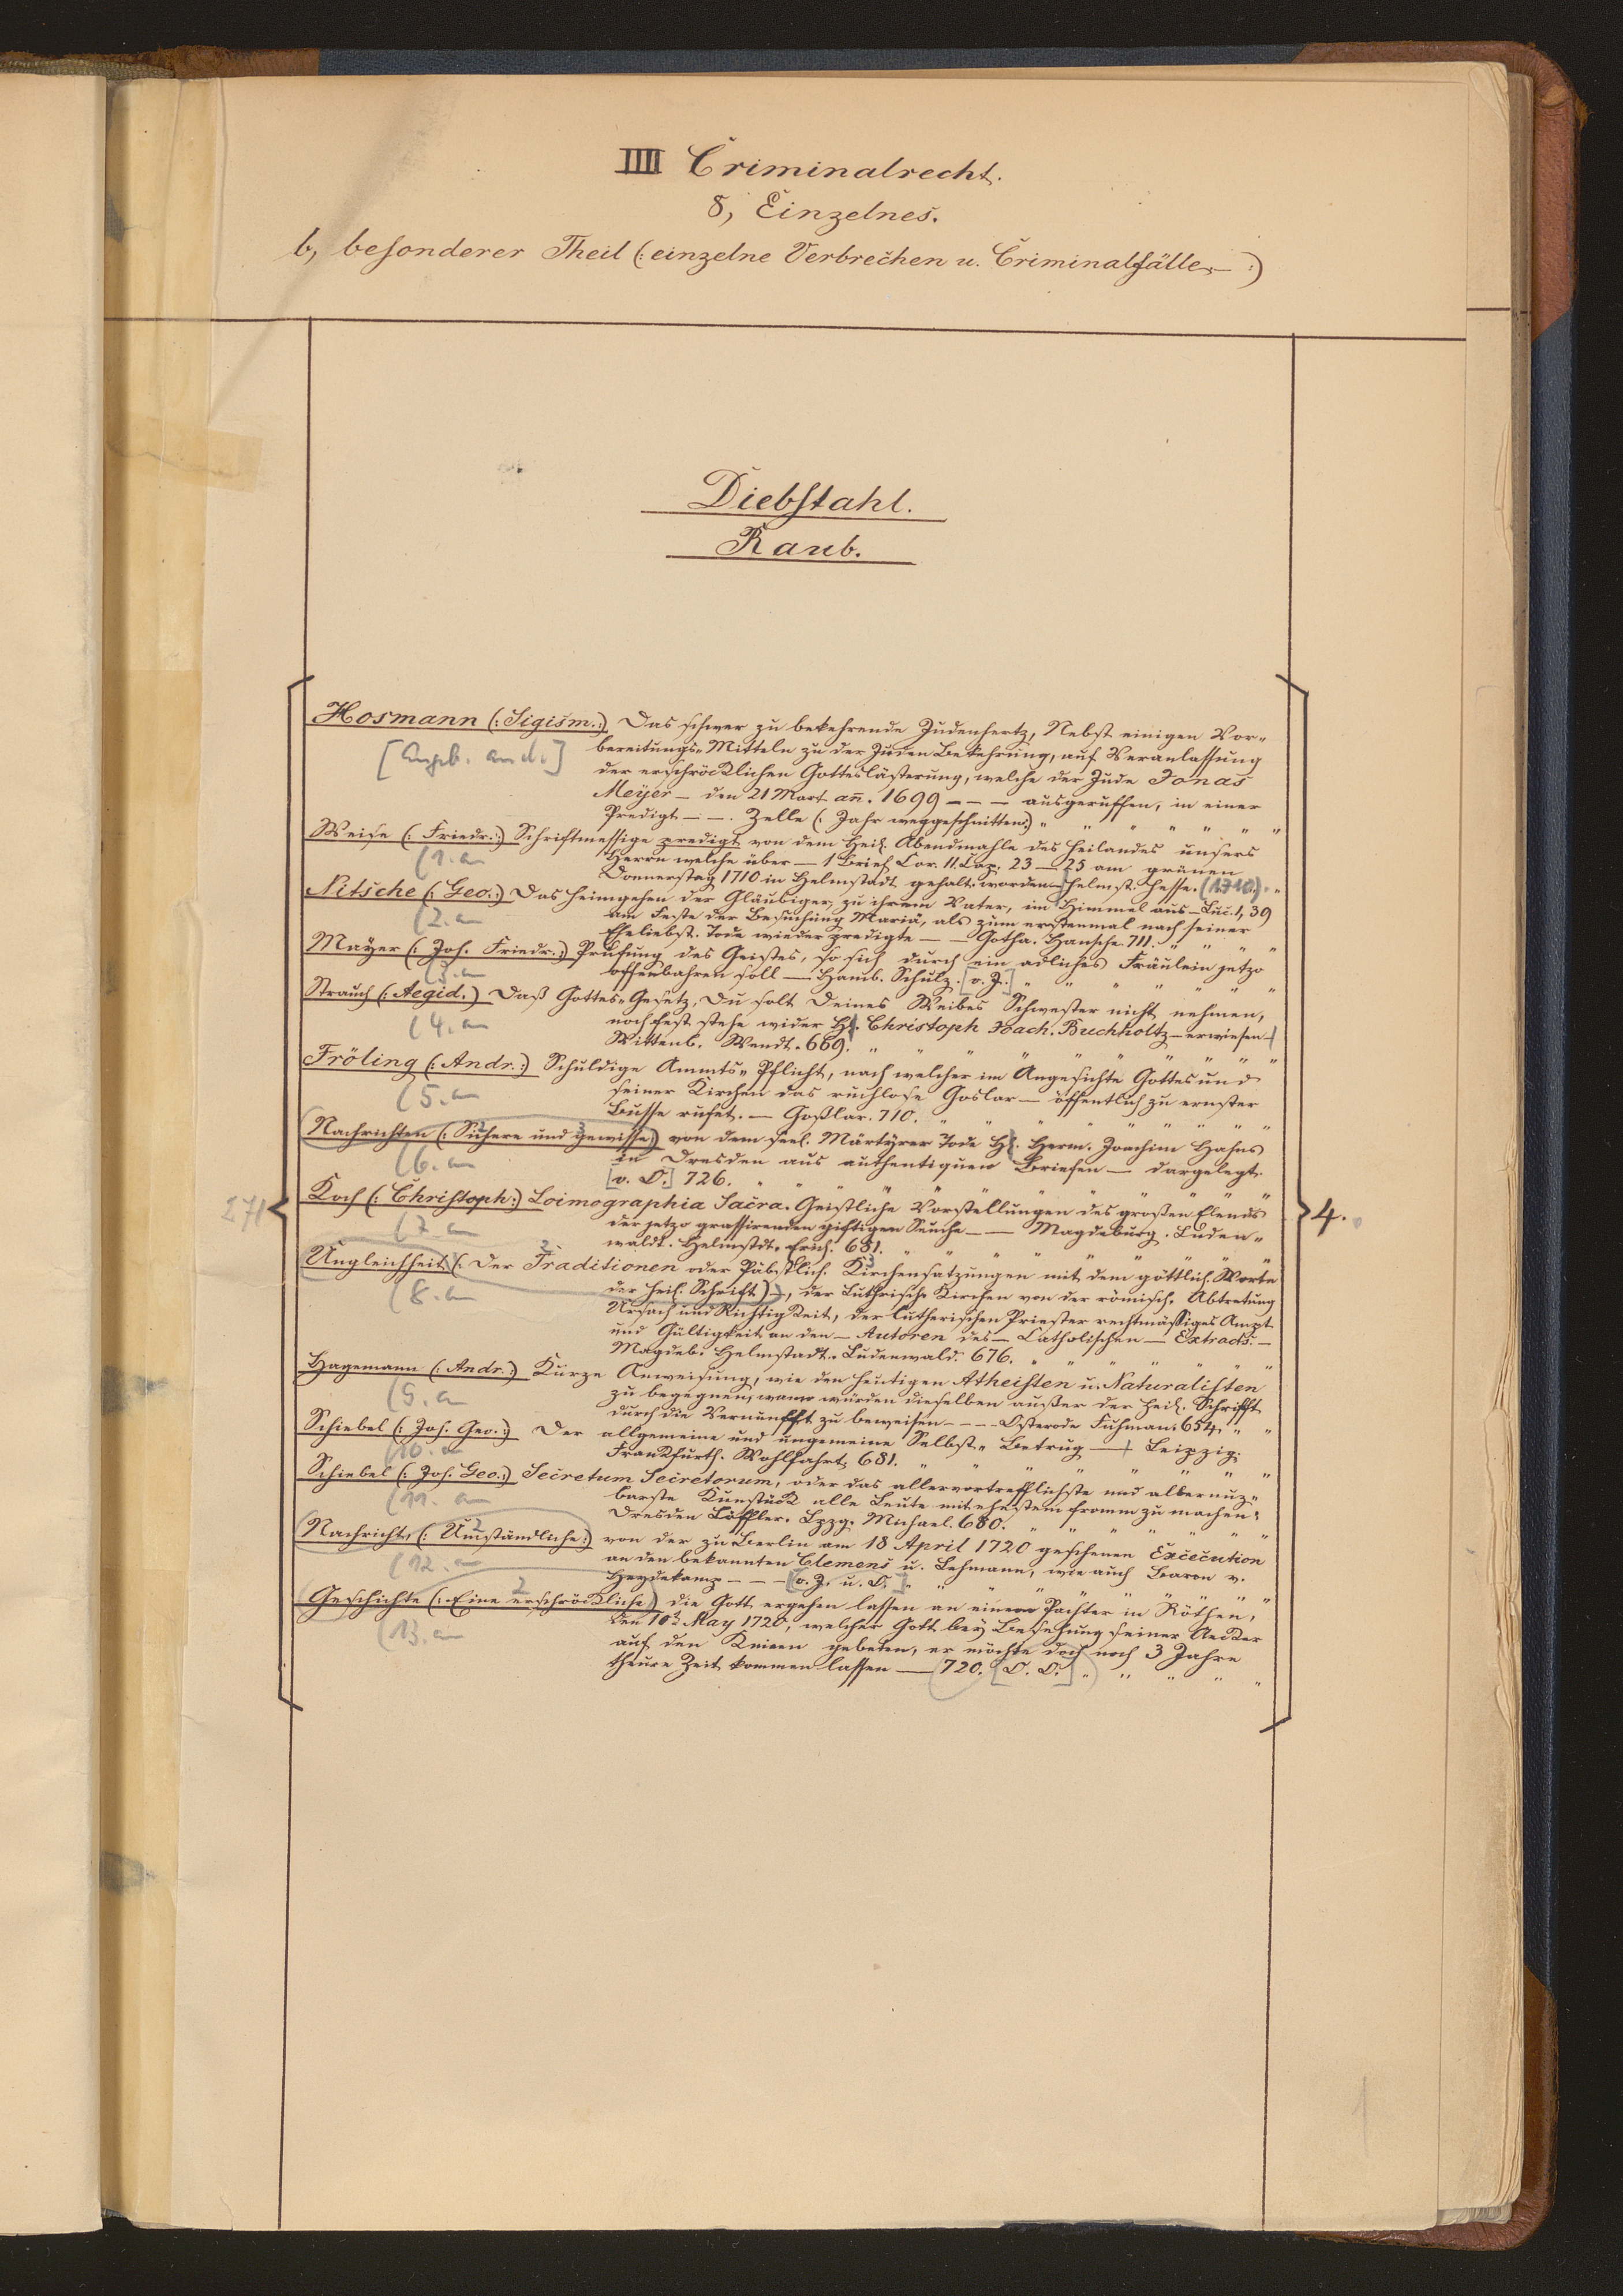 IIII Criminalrecht.
8, Einzelnes.
b, besonderer Theil (: einzelne Verbrechen u. Criminalfälle, — :)
Diebstahl.
Raub.
Hosmann (: Sigism. :) Das schwer zu bekehrende Judenhertz, Nebst einigen Vor-
bereitungs-Mitteln zu der Juden Bekehrung, auf Veranlassung
[Angeb. and.]
der erschröcklichen Gotteslästerung, welche der Jude Jonas
Meyer — den 21 Mart. an̄. 1699 — — — ausgeruffen, in einer
Predigt — — . Zelle (: Jahr weggeschnitten :) " " " " " " "
Weise (: Friedr. :) Schriftmessige predigt von dem Heil. Abendmahle des Heilandes unsers
(1. an
Herrn welche über — 1 Brief Cor. 11 Cap. 23 — 25 am grünen
Donnerstag 1710 in Helmstadt gehalt. worden — Helmst. Hesse. (1710). "
Nitsche (: Geo. :) Das Heimgehen der Gläubiger, zu ihrem Vater, im Himmel aus — Luc. 1, 39
(2. an
am Feste der Besuchung Mariä, als zum erstenmal nach seiner
Eheliebst. Tode wieder predigte — — Gotha. Hansche. 711. " " " "
Mayer (: Joh. Friedr. :) Prüfung des Geistes, so sich durch ein adliches Fräulein jetzo
(3. an
offenbahren soll — Hamb. Schulz. [o. J.] " " " " " "
Strauch (: Aegid. :) Daß Gottes-Gesetz, Du solt Deines Weibes Schwester nicht nehmen,
(4. an
noch fest stehe wider H. Christoph Joach. Buchholtz — erwiesen —
Wittenb. Wendt. 669. " " " " " " " " "
Fröling (: Andr. :) Schuldige Ammts-Pflicht, nach welcher im Angesichte Gottes und
(5. an
seiner Kirchen das ruchlose Goslar — öffentlich zu ernster
Busse rufet. — Goßlar. 710. " " " " " " " "
Nachrichten (: Sichere und gewisse :) von dem seel. Märtyrer Tode H. Herm. Joachim Hahns
(6. an
in Dresden aus authentiquen Briefen — dargelegt.
[o. O.] 726. " " " " " " " " "
Koch (: Christoph :) Loimographia Sacra. Geistliche Vorstellungen des großen Elends
271
4.
(7. an
der jetzo grassirenden gifftigen Seuche — — Magdeburg. Lüden-
waldt. Helmstdt. Erich. 681. " " " " " " " "
Ungleichheit (: Der Traditionen oder Päbstlich. Kirchensatzungen mit dem göttlich. Worte
2 3
(8. an
der Heil. Schrift :) —, der Luthrische Kirchen von der römisch. Abtretung
Ursach und Richtigkeit, der lutherischen Priester rechtmässiges Ampt
und Gültigkeit an den — Autoren des — Catholischen — Extracts. —
Magdeb. Helmstadt. Ludenwald. 676. " " " " " "
Hagemann (: Andr. :) Kurze Anweisung, wie den heutigen Atheisten u. Naturalisten
(9. an
zu begegnen, wann würden dieselben außer der Heil. Schrifft
durch die Vernunfft zu beweisen — — — Osterode Fuhman. 654. " "
Schiebel (: Joh. Geo. :) Der allgemeine und ungemeine Selbst-Betrug — Leipzig.
(10. an
Franckfurth. Wohlfahrt. 681. " " " " " " "
Schiebel (: Joh. Geo. :) Secretum Secretorum, oder das allervortrefflichste und allernuz-
(11. an
barste Kunstück alle Leute mit ehestem fromm zu machen.
Dresden Löffler. Lpzg. Michael. 680. " " " " " " "
Nachricht, (: Umständliche :) von der zu Berlin am 18 April 1720 geschenen Excecution
2
(12. an
an den bekannten Clemens u. Lehmann, wie auch Baron v.
Heydekamp — — — [o. J. u. O.] " " " " " "
Geschichte (: Eine erschröckliche :) die Gott ergehen lassen an einem Pächter in Köthen,
2
(13. an
den 10t. May 1720, welcher Gott bey Besehung seiner Aecker
auf den Knieen gebeten, er möchte doch noch 3 Jahre
theure Zeit kommen lassen — 720. [O. O.] " " " " "
1